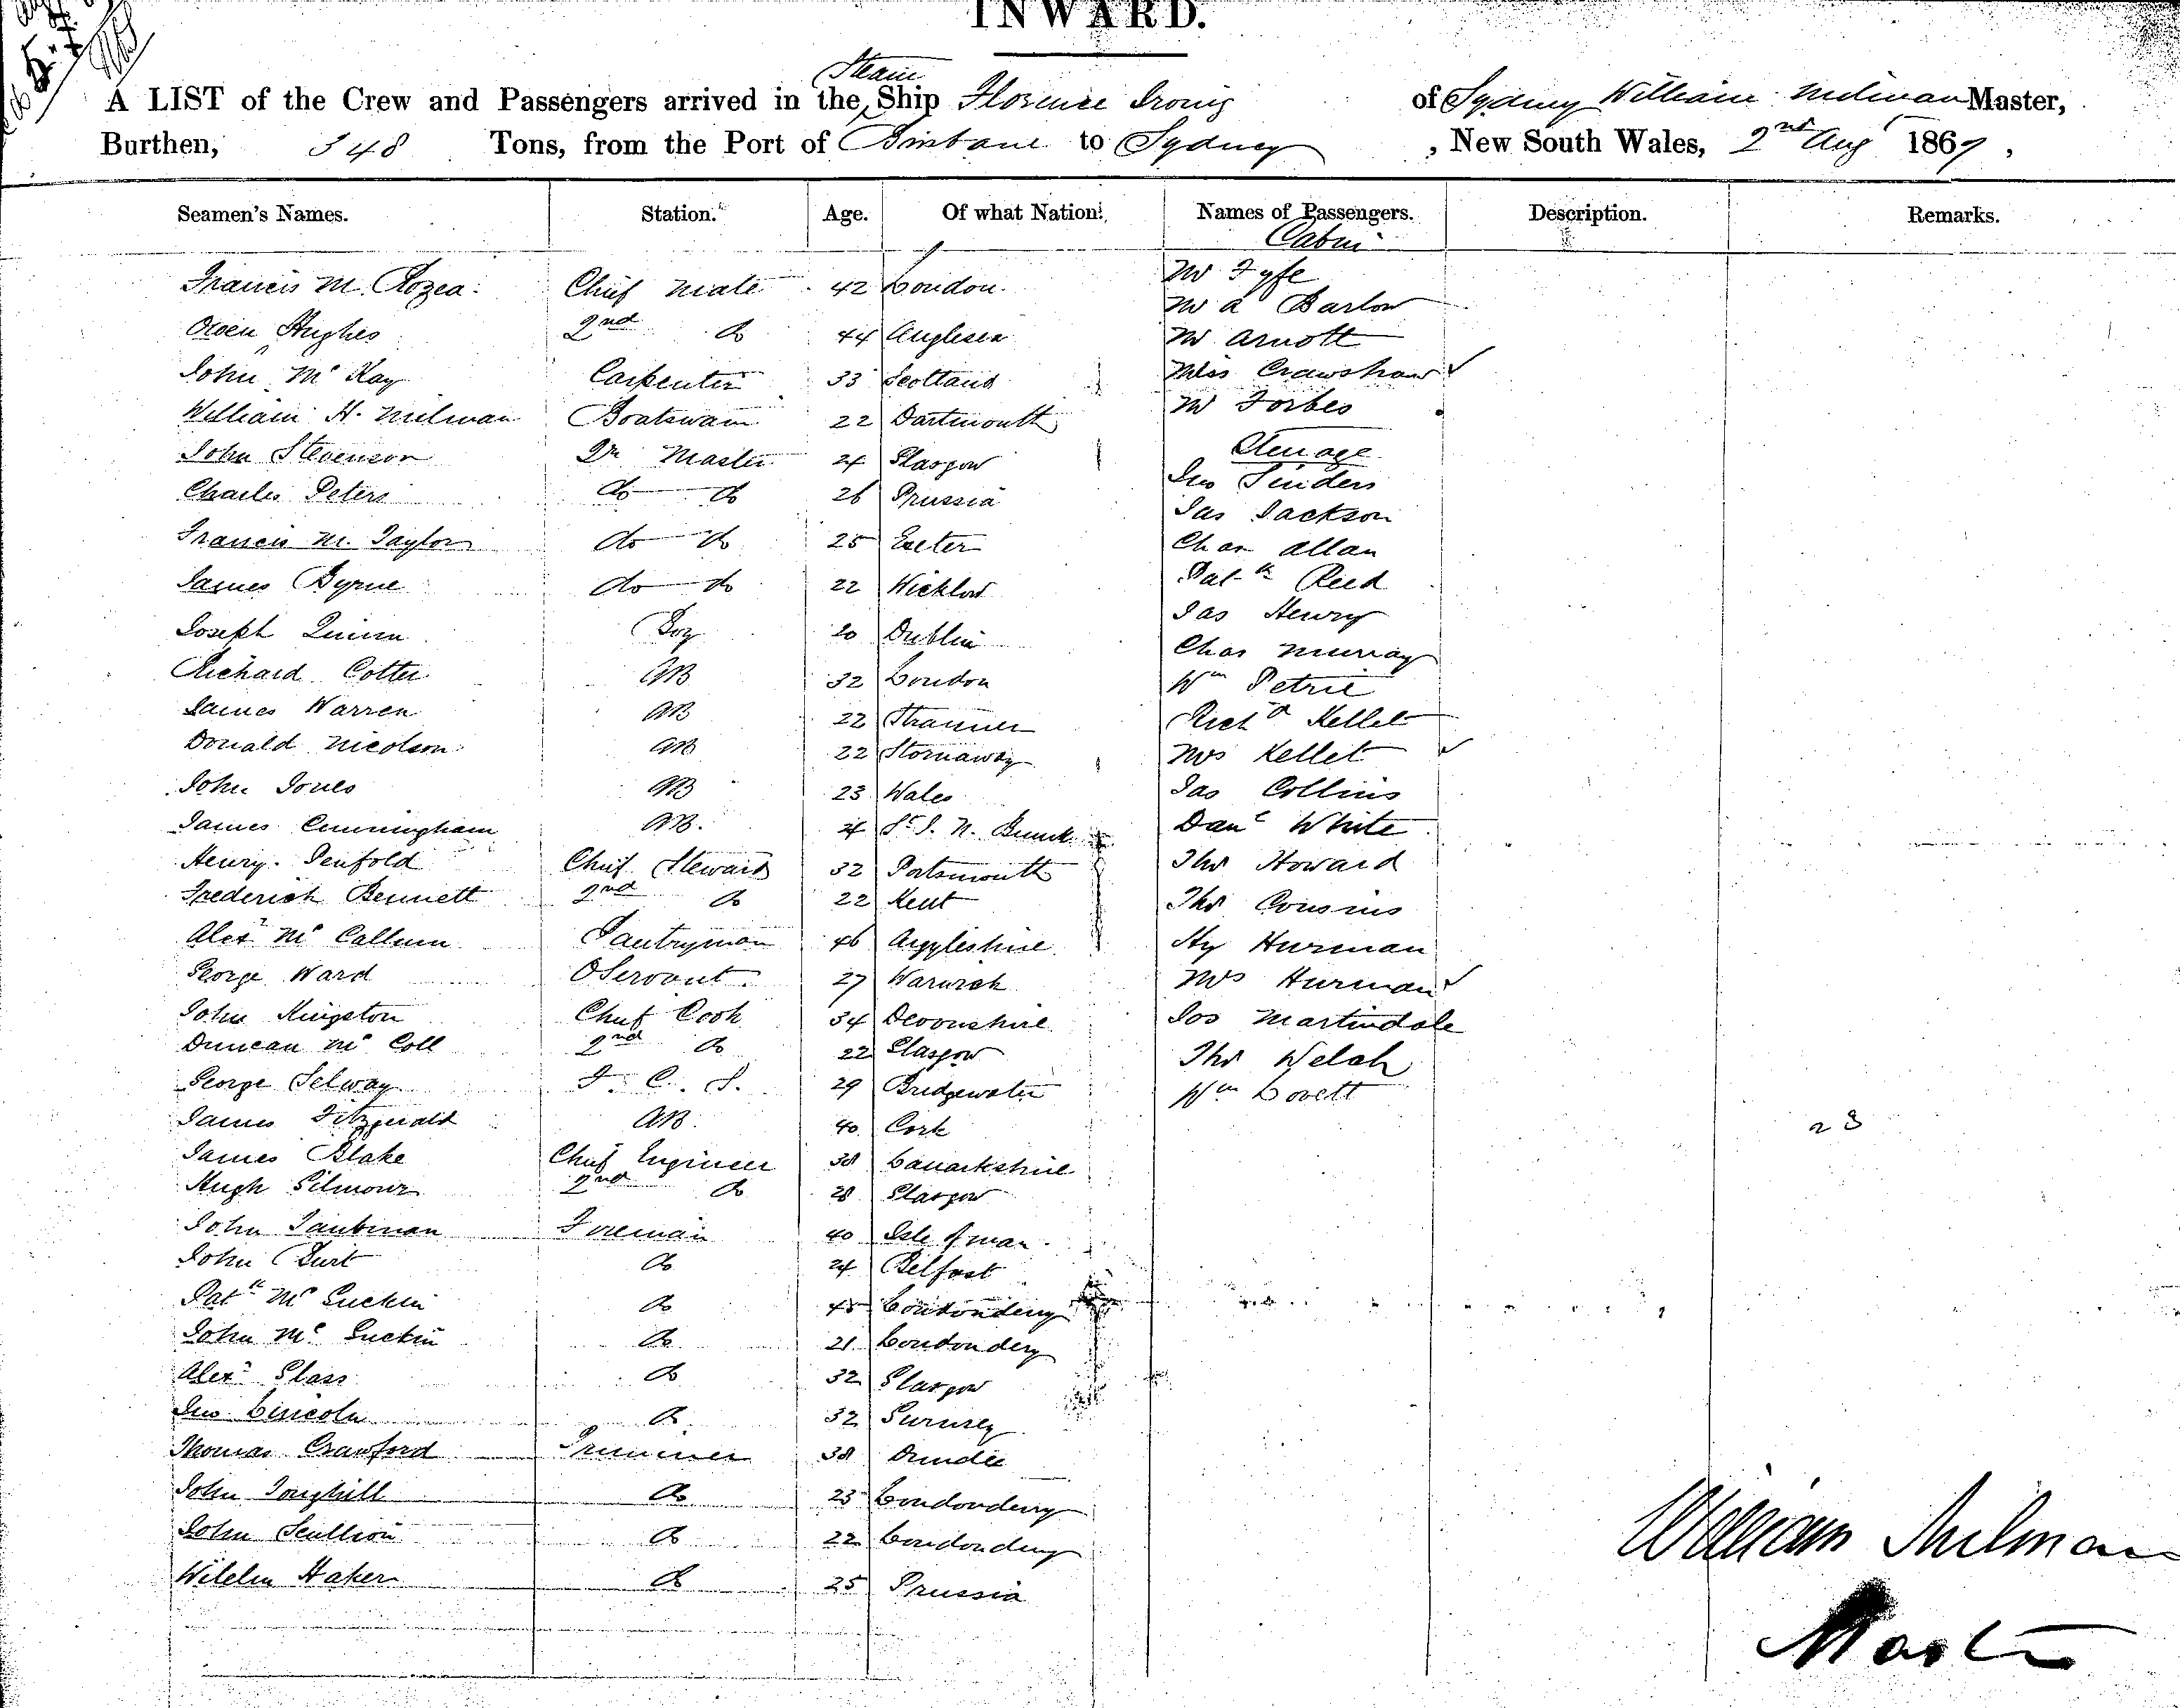 INWARD.
A LIST of the Crew and Passengers arrived in the Steam Ship Florence Irving of Sydney William Milman Master,
Burthen, 348 Tons, from the Port of Brisbane to Sydney, New South Wales, 2nd Aug 1869,
Seamen's Names. Station. Age. Of what Nation. Names of Passengers. Description. Remarks.
Cabin
Francis M. Rozea Chief Mate 42 London Mr Fyfe
Owen Hughes 2nd do 44 Anglesea Mr A Barlow
John Mc Kay Carpenter 33 Scotland Mr Arnott
William H. Milman Boatswain 22 Dartmouth Miss Crawshaw
John Stevenson Qr Master 24 Glasgow Mr Forbes
Charles Peters do do 26 Prussia Steerage
Francis M. Taylor do do 25 Exeter Jno Sinders
James Byrne do do 22 Wicklow Jas Jackson
Joseph Quinn Boy 20 Dublin Chas Allan
Richard Cotter AB 32 London Patk Reed
James Warren AB 22 Jas Henry
Donald Nicolson AB 22 Stornaway Chas Murray
John Jones AB 23 Wales Wm Petrie
James Cunningham AB. 24 St. J. N. Richd Kellet
Henry Penfold Chief Steward 32 Portsmouth Mrs Kellet
Frederick Bennett 2nd do 22 Kent Jas Collins
Alex Mc Callum Pantryman 46 Argyleshire Danl White
George Ward O Servant 27 Warwick Thos Howard
John Kingston Chief Cook 34 Devonshire Thos Cousins
Duncan Mc Coll 2nd do 22 Glasgow Hy Hurman
George Selway F. C. S. 29 Bridgewater Mrs Hurman
James Fitzgerald AB. 40 Cork Jos Martindale
James Blake Chief Engineer 38 Lanarkshire Thos Welch
Hugh Gilmour 2nd do 28 Glasgow Wm Lovett
23
John Taubman Fireman 40 Isle of man
John Burt do 24 Belfast
Patk Mc Guckin do 45 Londonderry
John Mc Guckin do 21 Londonderry
Alexr Glass do 32 Glasgow
Jno Lincoln do 32 Gurnsey
Thomas Crawford Trimmer 38 Dundee
John Toughill do 23 Londonderry
John Scullion do 22 Londonderry
Wilelm Haker do 25 Prussia
William Milman
Master